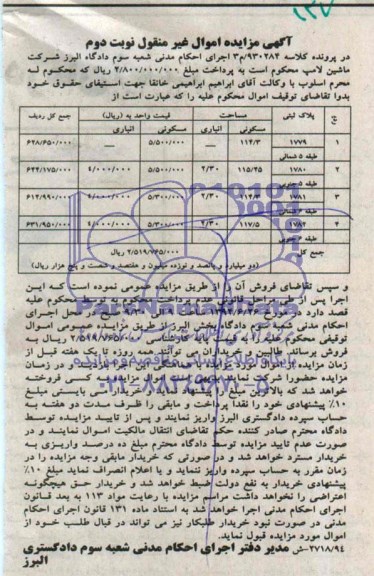 آگهی مزایده اموال غیر منقول نوبت دوم
در پرونده کلاسه ۹۳۰۲۸۴/م۳ اجرای احکام مدنی شعبه سوم دادگاه البرز شرکت
ماشین لامپ محکوم است به پرداخت مبلغ ۲/۸۰۰/۰۰۰/۰۰۰ ریال که محکوم له
محرم اسلوب با وکالت آقای ابراهیم ابراهیمی خانقا جهت استیفای حقوق خود
بدوا تقاضای توقیف اموال محکوم علیه را که عبارت است از
ج پلاک ثبتی مساحت قیمت واحد به (ریال) جمع کل ردیف
مسکونی انباری مسکونی انباری
۱ ۱۷۷۹ طبقه ۵ شمالی ۱۱۴/۳ — ۵/۵۰۰/۰۰۰ — ۶۲۸/۶۵۰/۰۰۰
۲ ۱۷۸۰ طبقه ۵ جنوبی ۱۱۵/۴۵ ۲/۳۰ ۵/۵۰۰/۰۰۰ ۴/۰۰۰/۰۰۰ ۶۴۴/۱۷۵/۰۰۰
۳ ۱۷۸۱ ۱۱۴/۳ ۲/۳۰ ۵/۳۰۰/۰۰۰ ۴/۰۰۰/۰۰۰ ۶۱۴/۹۹۰/۰۰۰
۴ ۱۷۸۲ ۱۱۷/۵ ۲/۳۰ ۵/۳۰۰/۰۰۰ ۴/۰۰۰/۰۰۰ ۶۳۱/۹۵۰/۰۰۰
جمع کل ۲/۵۱۹/۷۶۵/۰۰۰ ریال
(دو میلیارد و پانصد و نوزده میلیون و هفتصد و شصت و پنج هزار ریال)
و سپس تقاضای فروش آن را از طریق مزایده عمومی نموده است که این
اجرا پس از طی مراحل قانونی عدم پرداخت محکوم به توسط محکوم علیه
قصد دارد در مورخ در محل اجرای
احکام مدنی شعبه سوم دادگاه بخش البرز از طریق مزایده عمومی اموال
توقیفی محکوم علیه را به قیمت پایه کارشناسی ۲/۵۱۹/۷۶۵/۰۰۰ ریال به
فروش برساند. طالبین و خریداران می توانند پنج روزه تا یک هفته قبل از
زمان مزایده از اموال مورد مزایده با هماهنگی این اجرا بازدید و در زمان
مزایده حضورا شرکت نمایند. مزایده به کسی فروخته
خواهد شد که بالاترین مبلغ را پیشنهاد نماید. خریدار می بایستی مبلغ
۱۰٪ پیشنهادی خود را نقدا پرداخت و مابقی را ظرف مدت دو هفته به
حساب سپرده دادگستری البرز واریز نمایند و پس از تایید مزایده توسط
دادگاه محترم صادر کننده حکم تقاضای انتقال مالکیت اموال نمایند و در
صورت عدم تایید مزایده توسط دادگاه محترم مبلغ ده درصد واریزی به
خریدار مسترد خواهد شد و در صورتی که خریدار مابقی وجه مزایده را در
زمان مقرر به حساب سپرده واریز ننماید و یا اعلام انصراف نماید مبلغ ۱۰٪
پیشنهادی خریدار به نفع دولت ضبط خواهد شد و خریدار حق هیچگونه
اعتراضی را نخواهد داشت مراسم مزایده با رعایت مواد ۱۱۳ به بعد قانون
اجرای احکام مدنی اجرا خواهد شد به استناد ماده ۱۳۱ قانون اجرای احکام
مدنی در صورت نبود خریدار طلبکار نیز می تواند در قبال طلب خود از
اموال مورد مزایده قبول نماید.
۲۷۱۸/۹۴-ش مدیر دفتر اجرای احکام مدنی شعبه سوم دادگستری
البرز